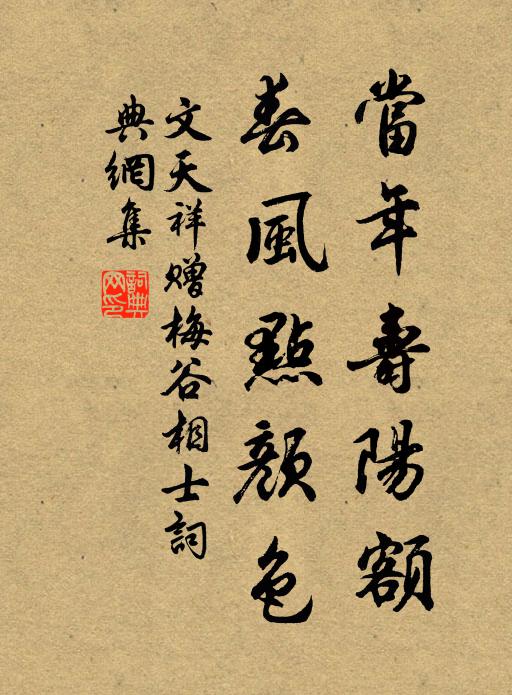 當年壽陽額
春風點顏色
文天祥贈梅谷相士詞
典網集
詞典网印